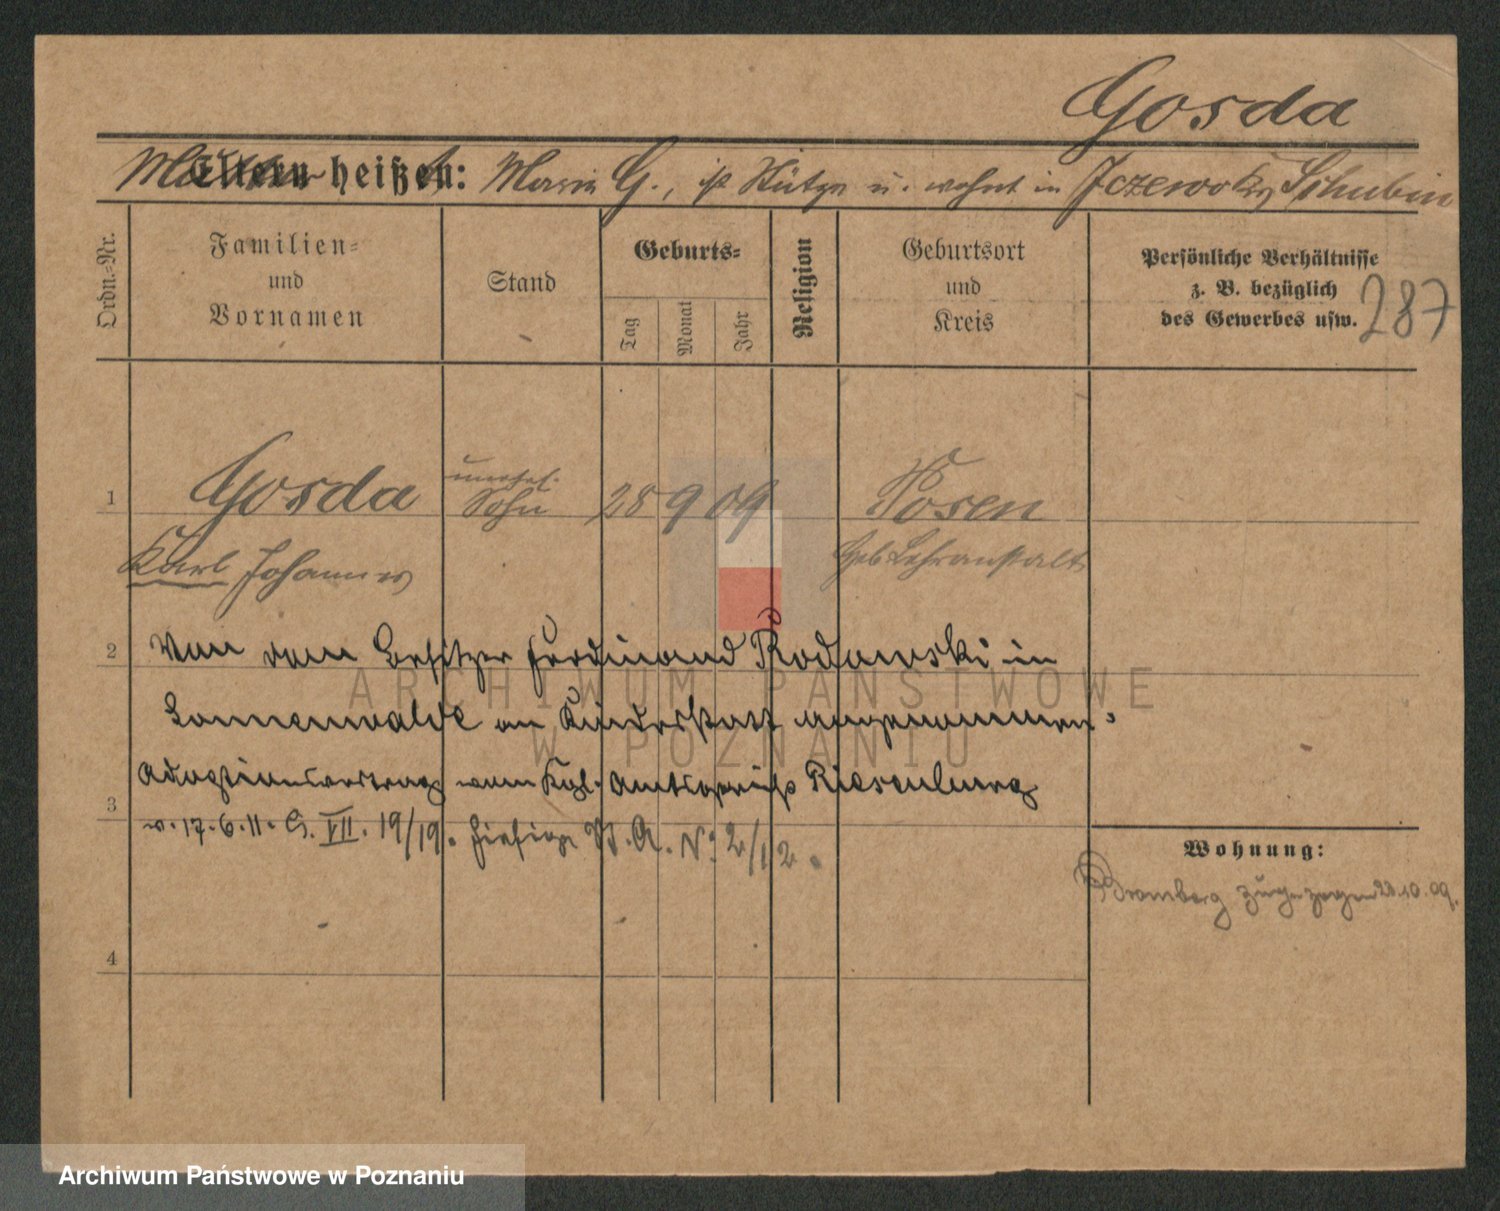 Gosda
Mutter
Eltern heißen: Maria G., ist Stütze u. wohnt in Jczewo Krs Schubin
Ordn.-Nr.
Familien-
und
Vornamen
Stand
Geburts-
Tag
Monat
Jahr
Religion
Geburtsort
und
Kreis
Persönliche Verhältnisse
z. B. bezüglich
des Gewerbes usw.
287
1
Gosda
unehel.
Sohn
28 9 09
Posen
Karl Johannes
Heb Lehranstalt
2
Von dem Besitzer Ferdinand Rodowski in
Sonnenwalde an Kindesstatt angenommen.
Adoptionsvertrag vom Kgl. Amtsgericht Riesenburg
3
v. 17.6.11. G. VII. 19/19. hiesige St. A. No 2/12.
Wohnung:
Bromberg zugezogen 22.10.09.
4
ARCHIWUM PAŃSTWOWE
W POZNANIU
Archiwum Państwowe w Poznaniu